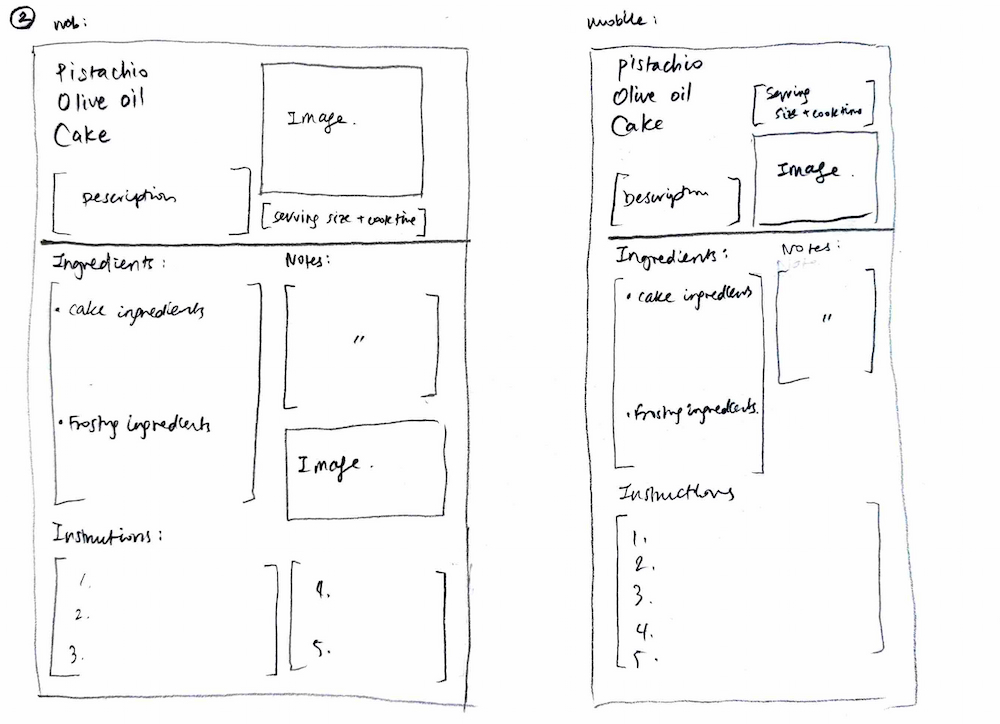 2 web:
Pistachio
Olive oil
Cake
Image.
Description
serving size + cook time
Ingredients:
• cake ingredients
• Frosting ingredients
Notes:
"
Image.
Instrutions:
1.
2.
3.
4.
5.
mobile:
pistachio
Olive oil
Cake
Serving
size + cook time
Image.
Description
Ingredients:
• cake ingredients
• Frosting ingredients.
Notes:
"
Instructions
1.
2.
3.
4.
5.